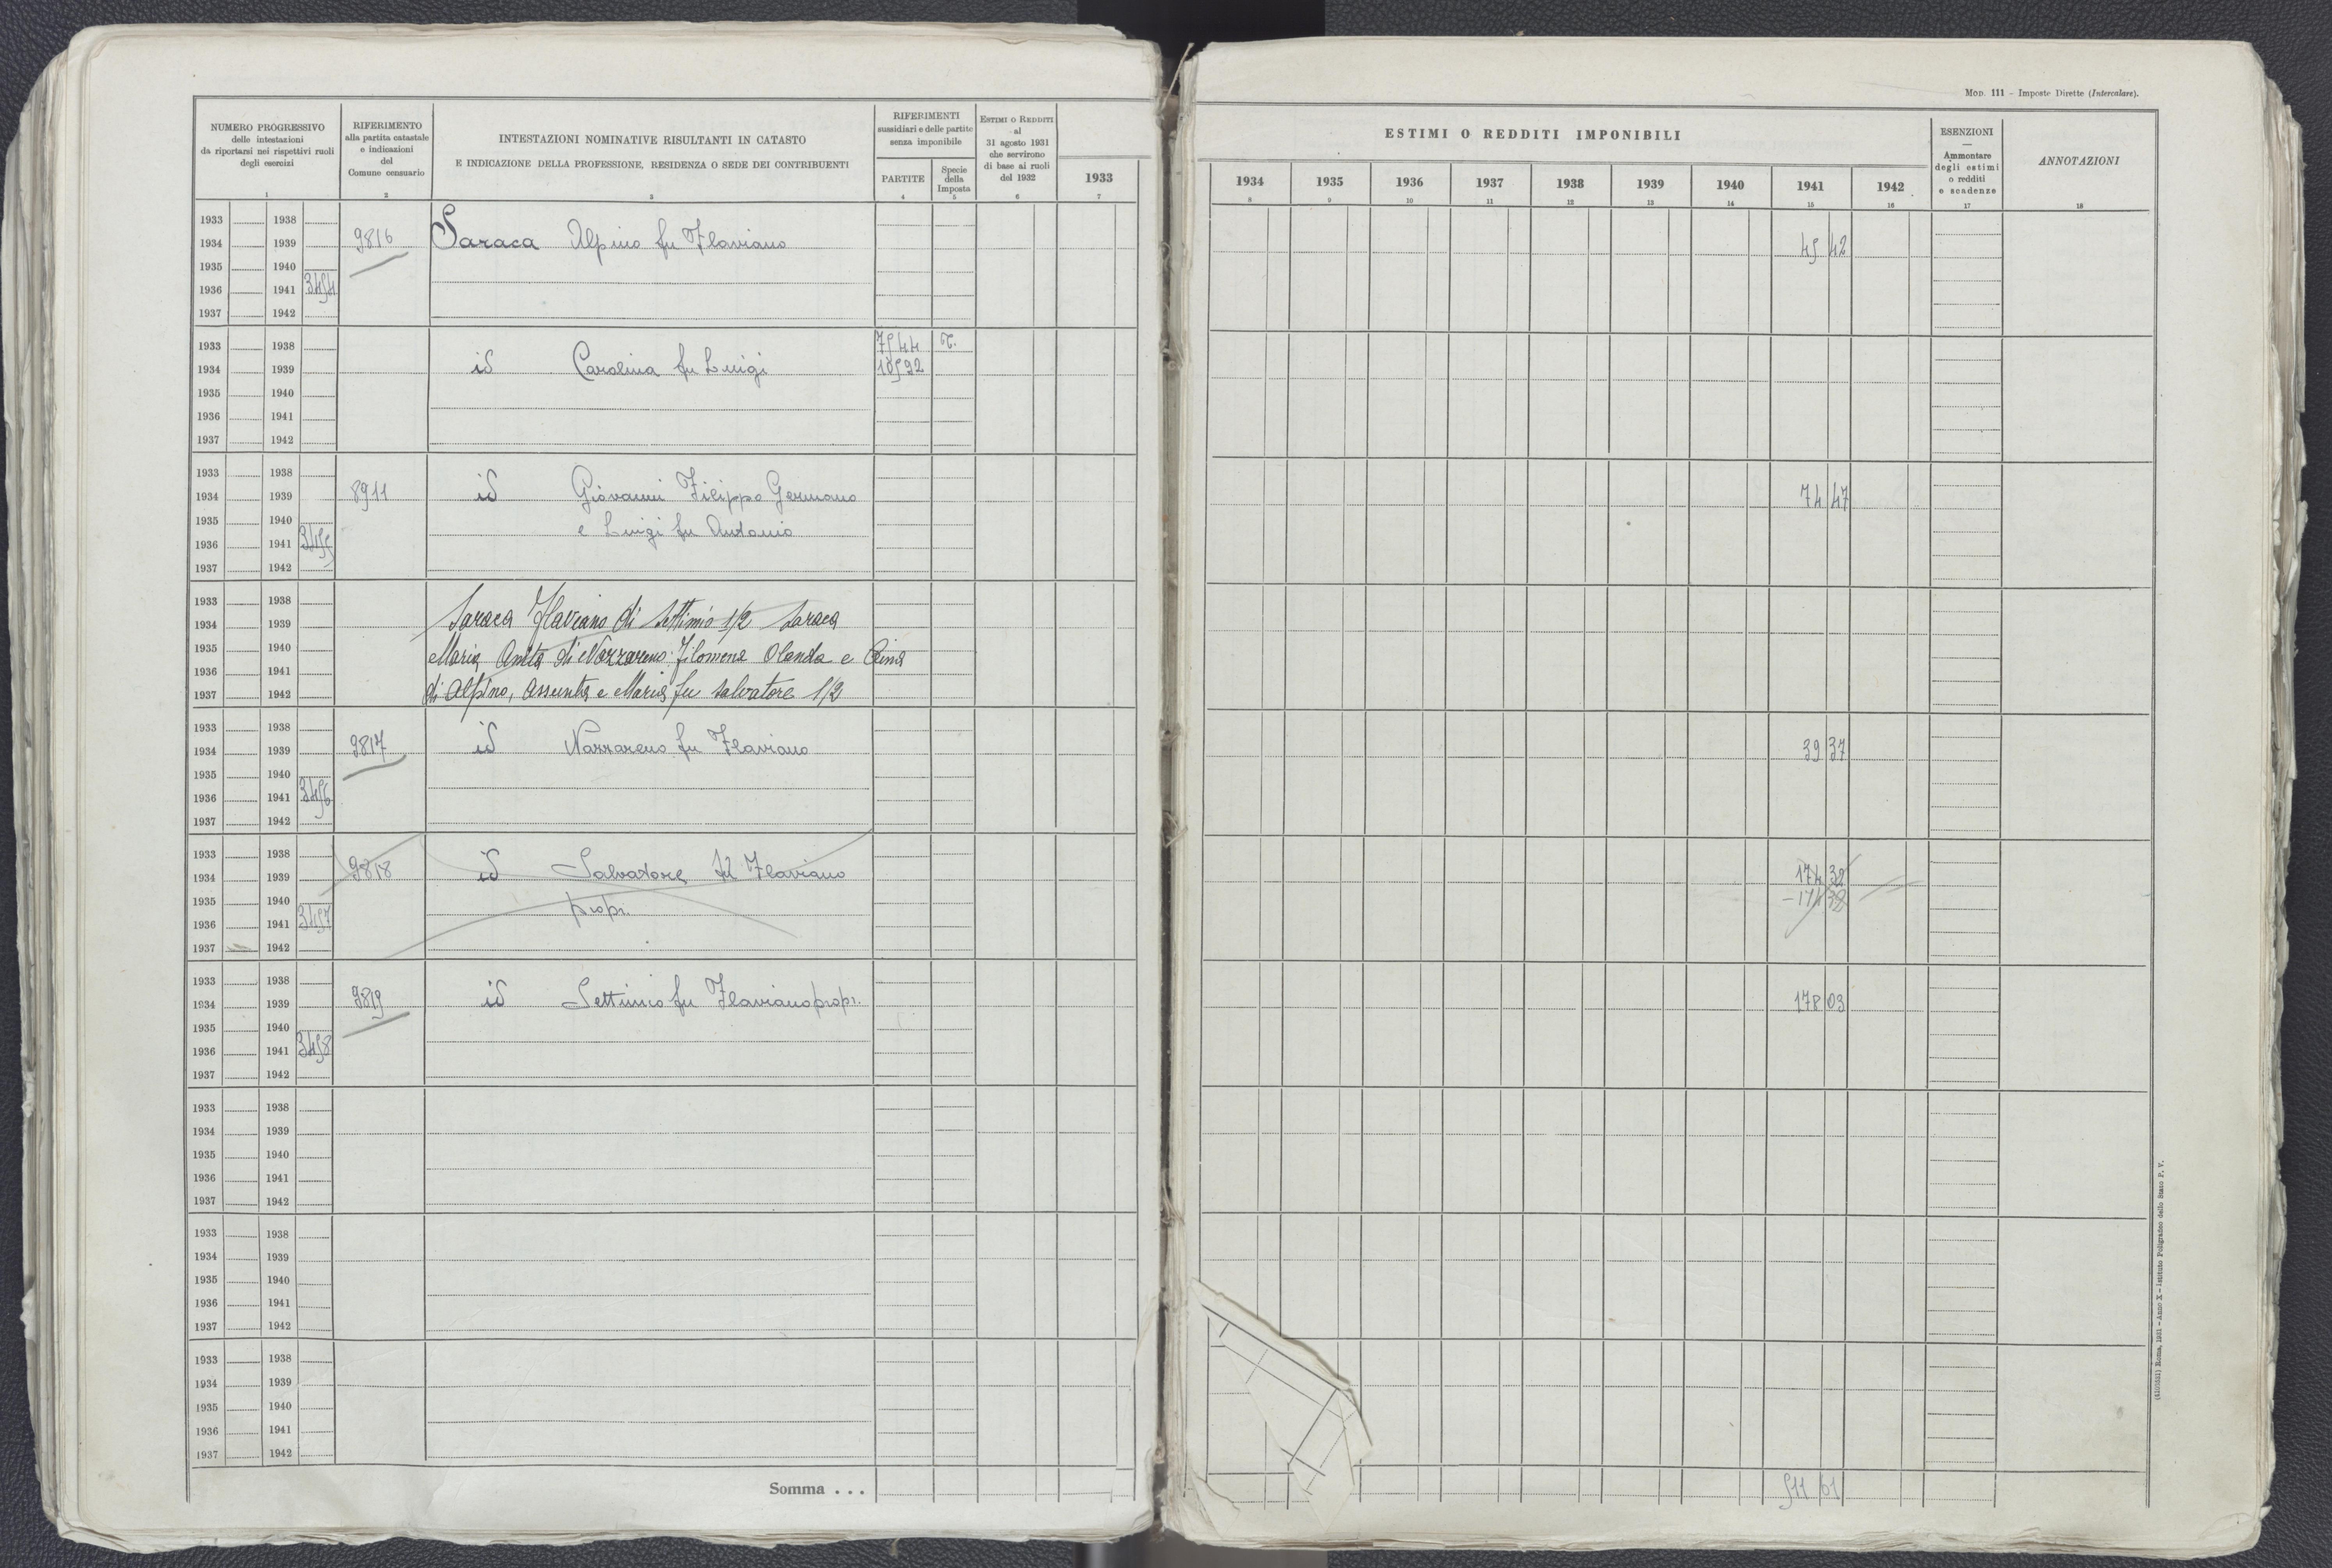 NUMERO PROGRESSIVO
delle intestazioni
da riportarsi nei rispettivi ruoli
degli esercizi
1
RIFERIMENTO
alla partita catastale
e indicazioni
del
Comune censuario
2
INTESTAZIONI NOMINATIVE RISULTANTI IN CATASTO
E INDICAZIONE DELLA PROFESSIONE, RESIDENZA O SEDE DEI CONTRIBUENTI
3
RIFERIMENTI
sussidiari e delle partite
senza imponibile
PARTITE
4
Specie
della
Imposta
5
ESTIMI O REDDITI
al
31 agosto 1931
che servirono
di base ai ruoli
del 1932
6
1933
7
MOD. 111 - Imposte Dirette (Intercalare).
ESTIMI O REDDITI IMPONIBILI
1934 1935 1936 1937 1938 1939 1940 1941 1942
8 9 10 11 12 13 14 15 16
ESENZIONI
—
Ammontare
degli estimi
o redditi
e scadenze
17
ANNOTAZIONI
18
1933 1938
1934 1939 9816 Saraca Alpino fu Flaviano 45 42
1935 1940
1936 1941 3454
1937 1942
1933 1938 7544 T.
1934 1939 id Carolina fu Luigi 10592
1935 1940
1936 1941
1937 1942
1933 1938
1934 1939 8911 id Giovanni Filippo Germano 74 47
1935 1940 e Luigi fu Antonio
1936 1941 3455
1937 1942
1933 1938
1934 1939 Saraca Flaviano di Settimio 1/2 Saraca
1935 1940 Maria Anita di Nazzareno: Filomena Olanda e
1936 1941
1937 1942 di Alpino, Assunta e Maria fu Salvatore 1/2
1933 1938
1934 1939 9817 id Nazzareno fu Flaviano 39 37
1935 1940
1936 1941 3456
1937 1942
1933 1938
1934 1939 9818 id Salvatore fu Flaviano 174 32
1935 1940 propr. -174 32
1936 1941 3457
1937 1942
1933 1938
1934 1939 9819 id Settimio fu Flaviano propr. 178 03
1935 1940
1936 1941 3458
1937 1942
1933 1938
1934 1939
1935 1940
1936 1941
1937 1942
1933 1938
1934 1939
1935 1940
1936 1941
1937 1942
1933 1938
1934 1939
1935 1940
1936 1941
1937 1942
Somma . . . 511 61
Roma, 1931 - Anno X - Istituto Poligrafico dello Stato P. V.